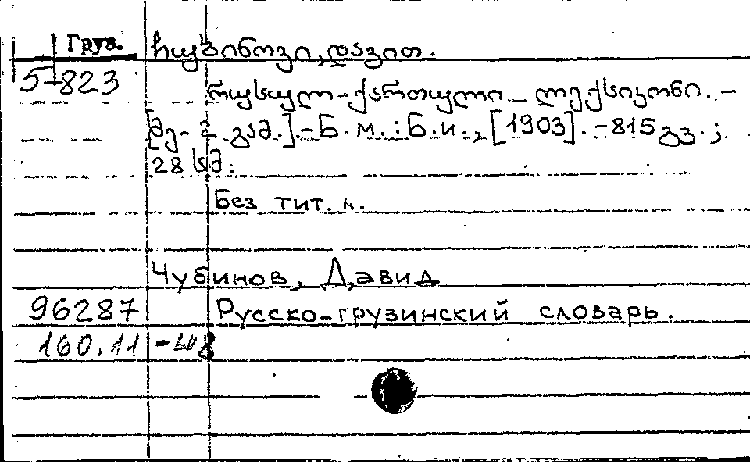 Груз. ჩუბინოვი, დავით.
5-823 რუსულ-ქართული ლექსიკონი. -
[მე-2 გამ.].-Б.м.:Б.и.,[1903].-815გვ.;
28 სმ.
Без тит. л.
Чубинов, Давид
96287 Русско-грузинский словарь.
160.11